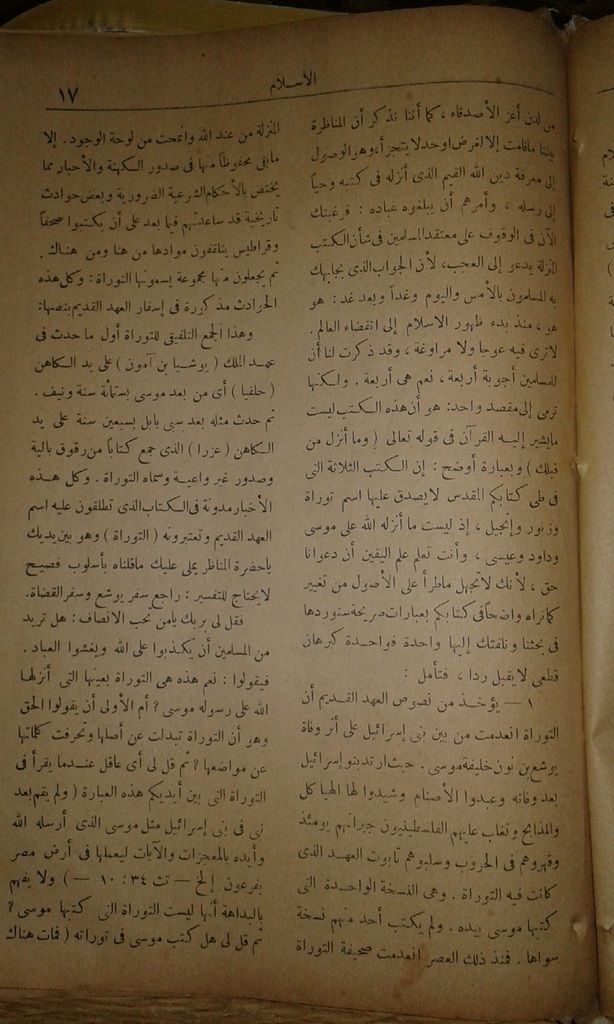 الاسلام
١٧
من لدن أعز الأصدقاء ، كما أننا نذكر أن المناظرة
بيننا ماقامت إلا لغرض واحد لا يتجزأ، وهو الوصول
إلى معرفة دين الله القيم الذى أنزله فى كتبه وحياً
إلى رسله ، وأمرهم أن يبلغوه عباده : فرغبتك
الآن فى الوقوف على معتقد المسلمين فى شأن الكتب
المنزلة يدعو إلى العجب، لأن الجواب الذى يجابهك
به المسلمون بالأمس واليوم وغداً وبعد غد : هو
هو ، منذ بدء ظهور الاسلام إلى انقضاء العالم .
لا ترى فيه عوجا ولا مراوغة ، وقد ذكرت لنا أن
للمسلمين أجوبة أربعة ، نعم هى أربعة . ولكنها
ترمى إلى مقصد واحد: هو أن هذه الكتب ليست
ما يشير إليه القرآن فى قوله تعالى ( وما أنزل من
قبلك ) وبعبارة أوضح : إن الكتب الثلاثة التى
فى طى كتابكم المقدس لا يصدق عليها اسم توراة
وزبور وإنجيل ، إذ ليست ما أنزله الله على موسى
وداود وعيسى ، وأنت تعلم علم اليقين أن دعوانا
حق ، لأنك لا تجهل ماطرأ على الأصول من تغيير
كما نراه واضحاً فى كتابكم بعبارات صريحة سنوردها
فى بحثنا ونلفتك إليها واحدة فواحدة كبرهان
قطعى لا يقبل ردا ، فتأمل :
١ — يؤخذ من نصوص العهد القديم أن
التوراة انعدمت من بين بنى إسرائيل على أثر وفاة
يوشع بن نون خليفة موسى . حيث ارتد بنو إسرائيل
بعد وفاته وعبدوا الأصنام وشيدوا لها الهياكل
والمذابح وتغلب عليهم الفلسطينيون جيرانهم يومئذ
وقهروهم فى الحروب وسلبوهم تابوت العهد الذى
كانت فيه التوراة . وهى النسخة الواحدة التى
كتبها موسى بيده . ولم يكتب أحد منهم نسخة
سواها . فمنذ ذلك العصر انعدمت صحيفة التوراة
المنزلة من عند الله وانمحت من لوحة الوجود . إلا
مابقى محفوظاً منها فى صدور الكهنة والأحبار مما
يختص بالأحكام الشرعية الضرورية وبعض حوادث
تاريخية قد ساعدتهم فيما بعد على أن يكتبوا صحفاً
وقراطيس يتلقفون موادها من هنا ومن هناك .
ثم يجعلون منها مجموعة يسمونها التوراة : وكل هذه
الحوادث مذكورة فى إسفار العهد القديم بنصها:
وهذا الجمع التلفيقى للتوراة أول ما حدث فى
عهد الملك ( يوشيا بن آمون ) على يد الكاهن
( حلقيا ) أى من بعد موسى بستمائة سنة ونيف .
ثم حدث مثله بعد سبى بابل بسبعين سنة على يد
الكاهن ( عزرا ) الذى جمع كتاباً من رقوق بالية
وصدور غير واعية وسماه التوراة . وكل هذه
الأخبار مدونة فى الكتاب الذى تطلقون عليه اسم
العهد القديم وتعتبرونه ( التوراة ) وهو بين يديك
يا حضرة المناظر يملى عليك ماقلناه بأسلوب فصيح
لا يحتاج للتفسير : راجع سفر يوشع وسفر القضاة.
فقل لى بربك يامن تحب الانصاف: هل تريد
من المسلمين أن يكذبوا على الله ويغشوا العباد .
فيقولوا : نعم هذه هى التوراة بعينها التى أنزلها
الله على رسوله موسى ؟ أم الأولى أن يقولوا الحق
وهو أن التوراة تبدلت عن أصلها وتحرفت كلماتها
عن مواضعها ؟ ثم قل لى أى عاقل عندما يقرأ فى
التوراة التى بين أيديكم هذه العبارة ( ولم يقم بعد
نبى فى بنى إسرائيل مثل موسى الذى أرسله الله
وأيده بالمعجزات والآيات ليعملها فى أرض مصر
بفرعون إلخ — تث ٣٤ : ١٠ — ) ولا يفهم
بالبداهة أنها ليست التوراة التى كتبها موسى ؟
ثم قل لى هل كتب موسى فى توراته ( فمات هناك